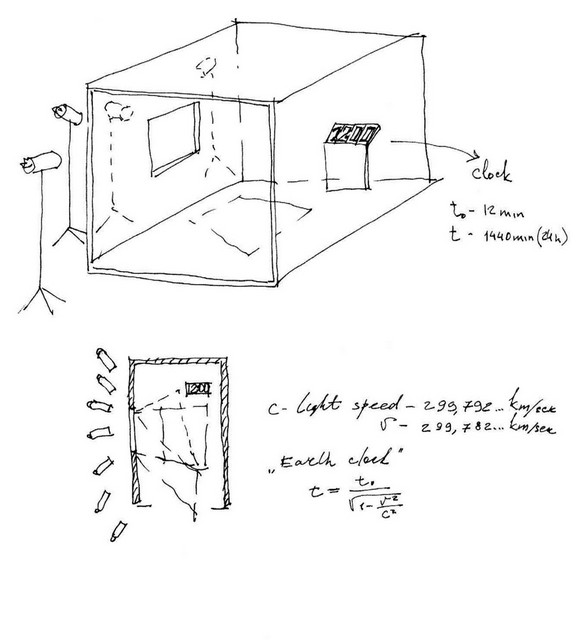 1200
clock
t₀ - 12 min
t - 1440 min (24h)
1200
c - Light speed - 299,792... km/sec
v - 299,782... km/sec
„Earth clock"
t = t₀ / √(1 - v²/c²)